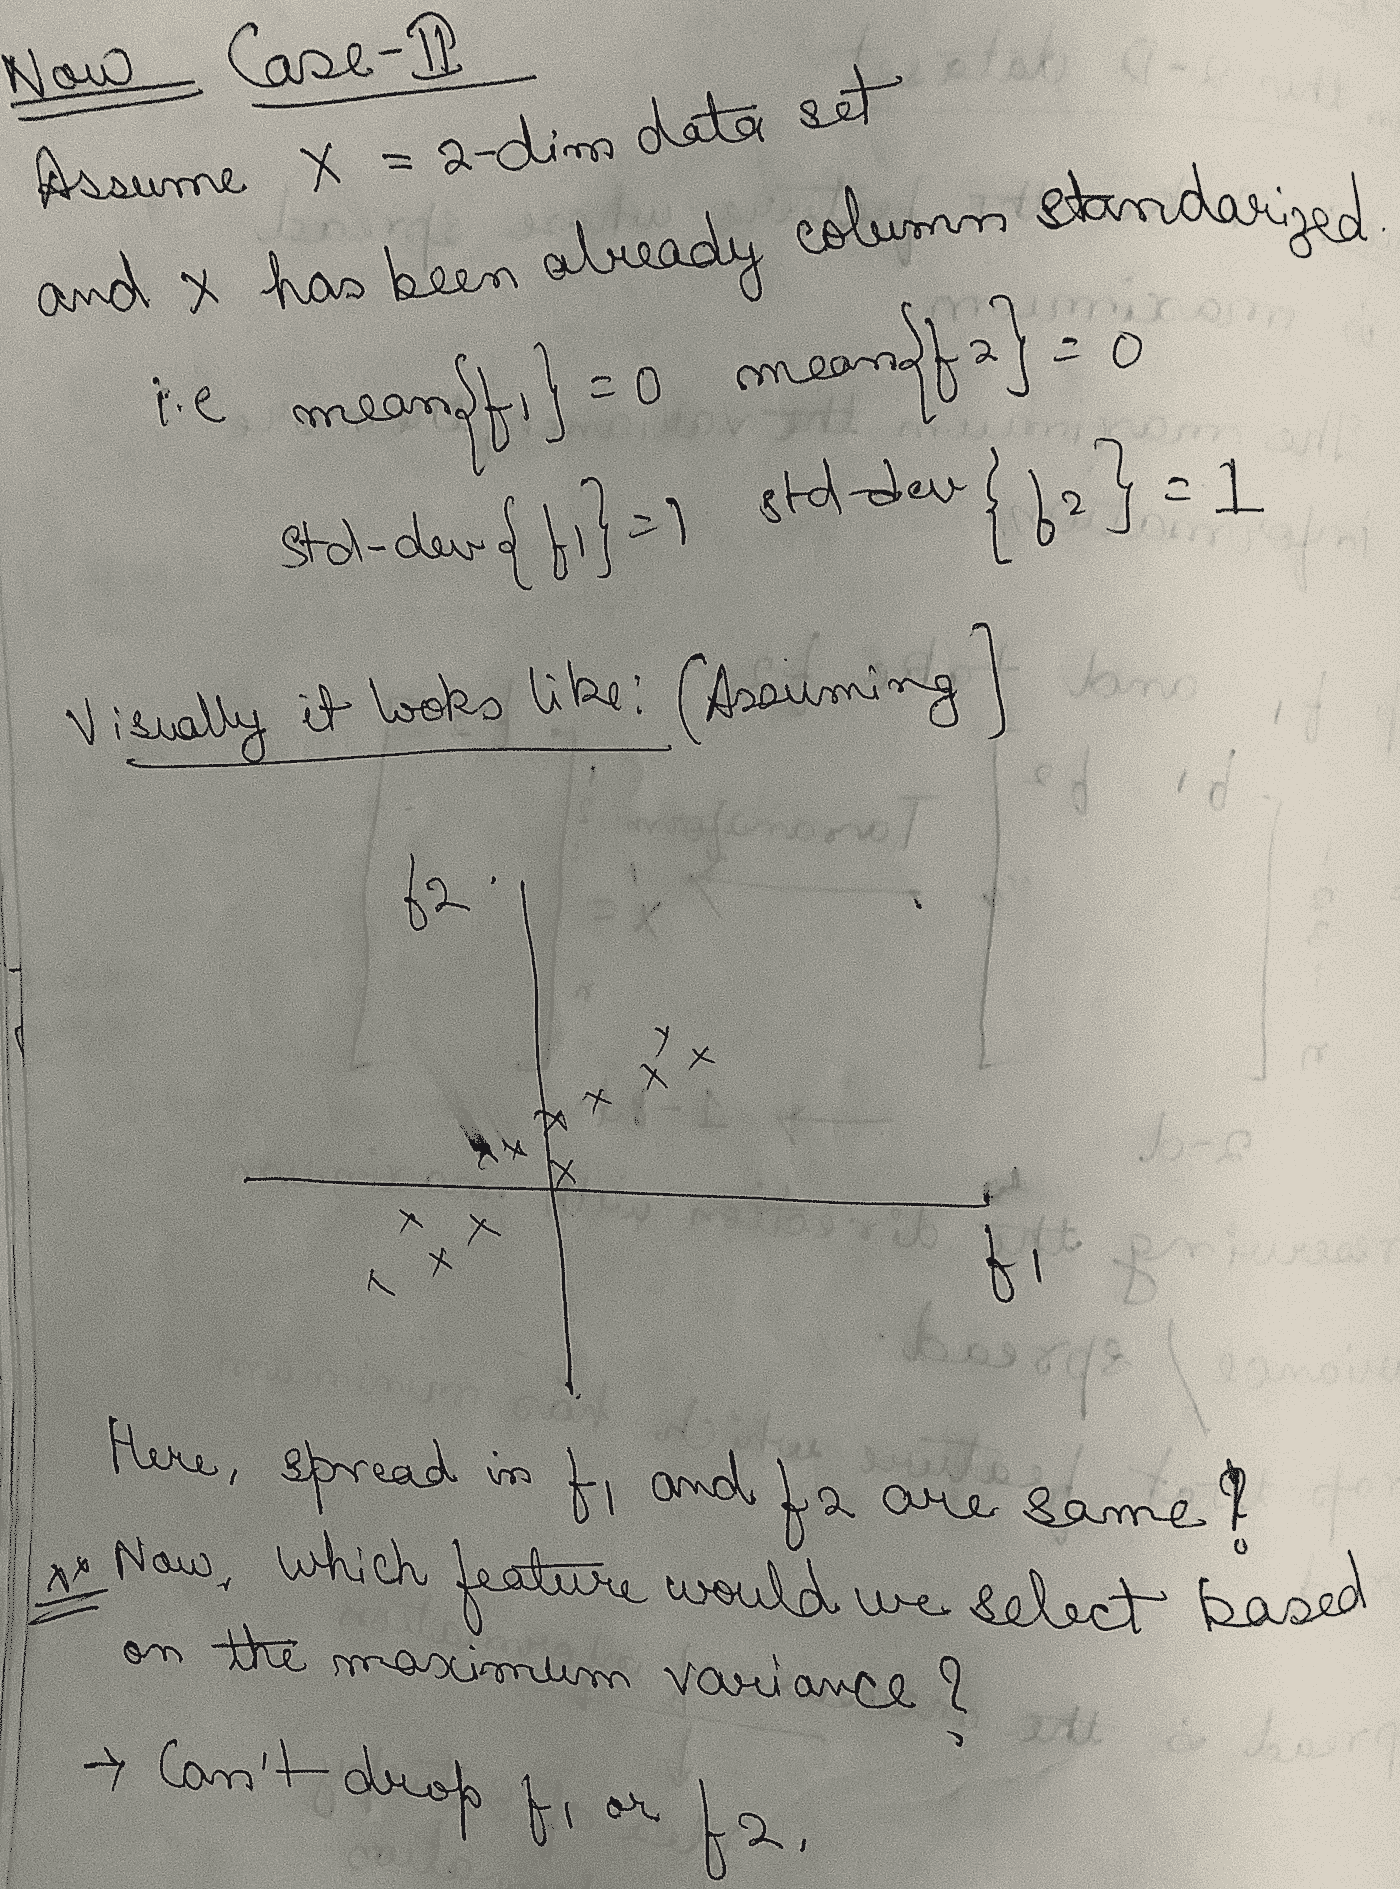 Now Case-II
Assume X = 2-dim data set
and X has been already column standarized.
i.e mean{f1} = 0 mean{f2} = 0
std-dev{f1} = 1 std-dev{f2} = 1
Visually it looks like: (Assuming]
f2
f1
Here, spread in f1 and f2 are same?
** Now, which feature would we select based
on the maximum variance?
→ Can't drop f1 or f2.